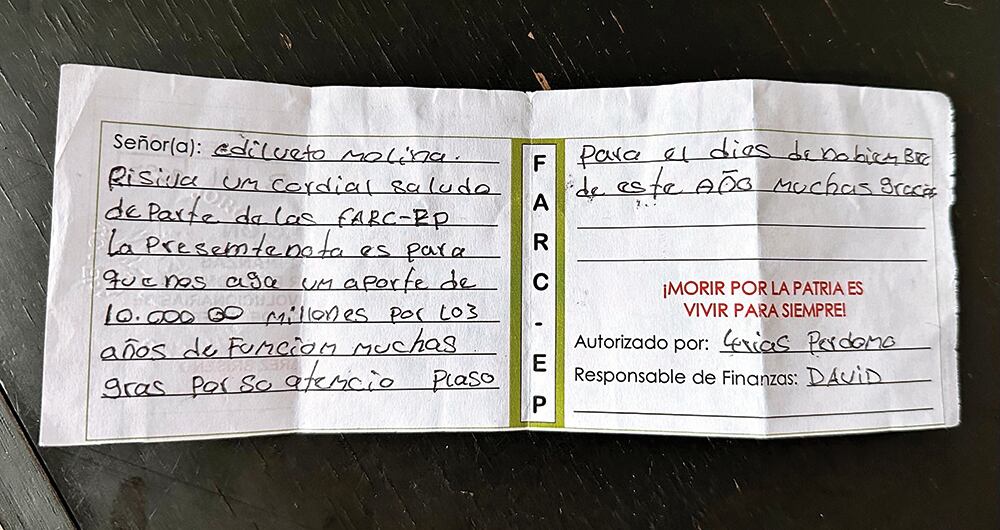 Señor(a): edilveto molina.
Risiva un cordial saludo
de parte de las FARC-EP
la presemtenota es para
que nos aga un aporte de
10.000 00 millones por los
años de Funcion muchas
gras por so atencio Plaso
F
A
R
C
-
E
P
para el dias de nobiemBre
de este AÑO muchas gracas
¡MORIR POR LA PATRIA ES
VIVIR PARA SIEMPRE!
Autorizado por: Perdomo
Responsable de Finanzas: DAVID